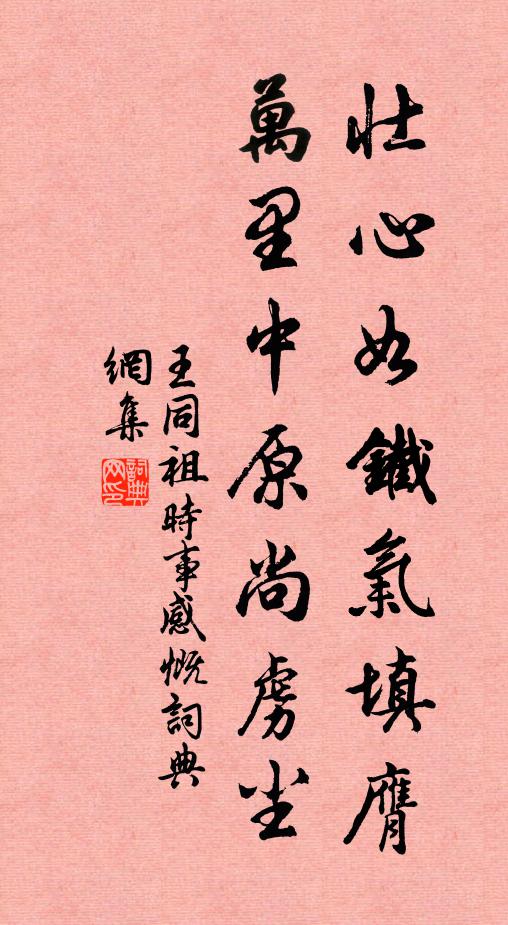 壮心如鐵氣填膺
萬里中原尚虜尘
王同祖時事感慨詞典
網集
詞典网印